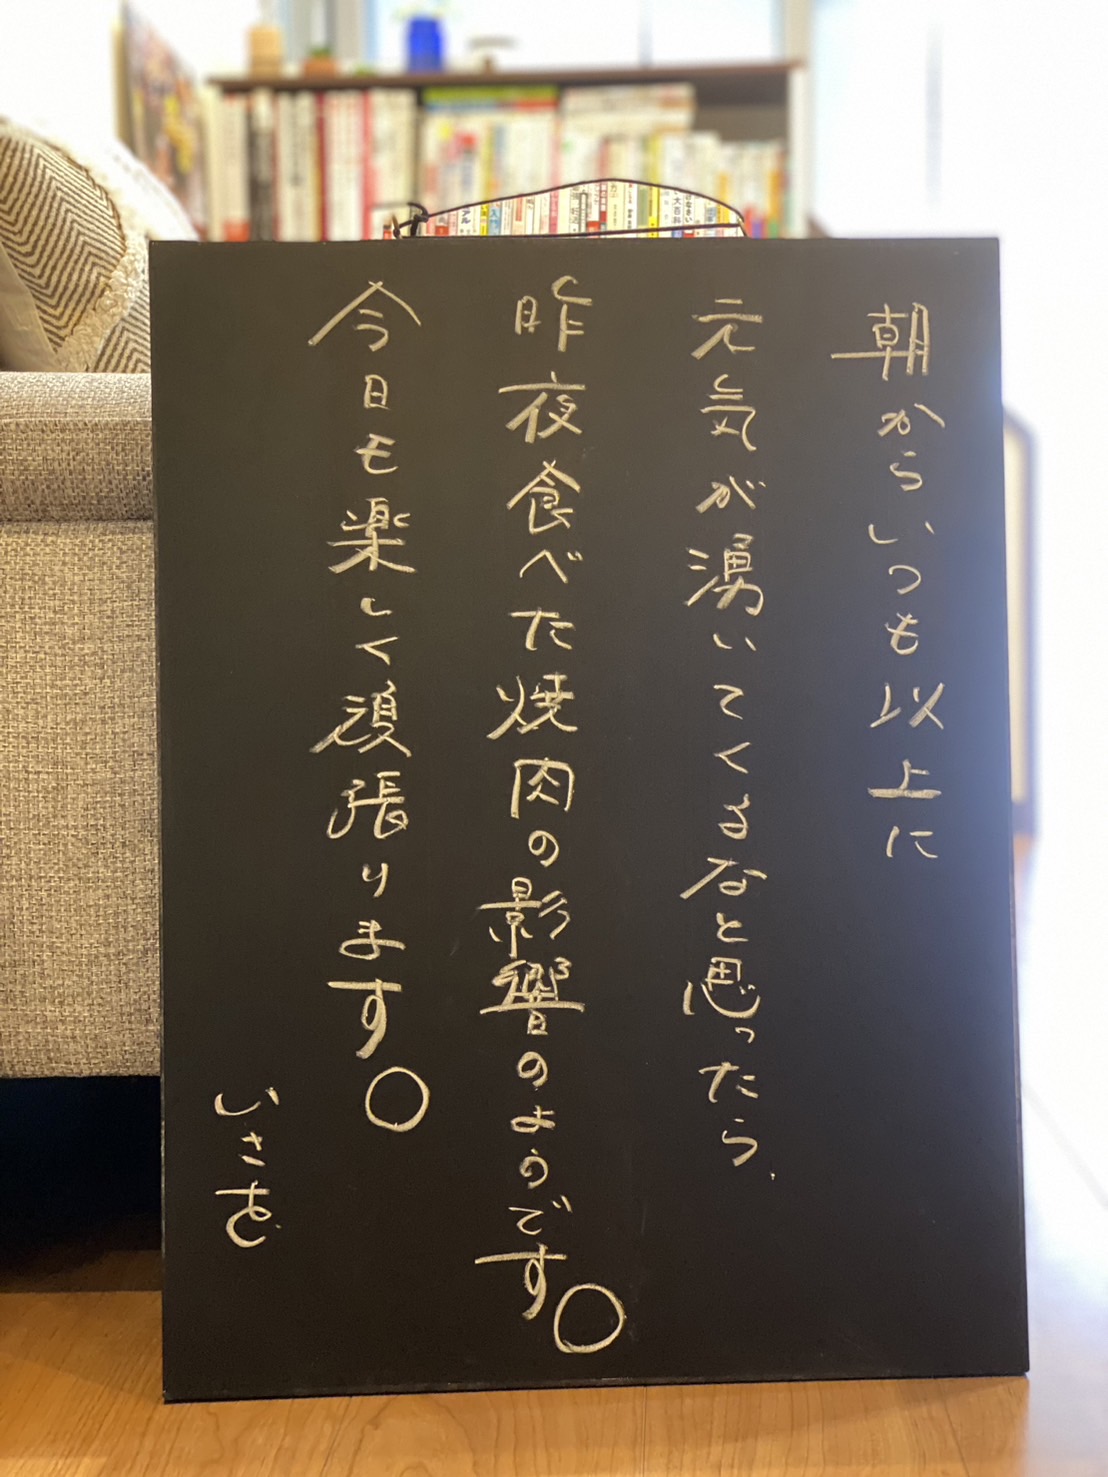 朝からいつも以上に
元気が湧いてくるなと思ったら、
昨夜食べた焼肉の影響のようです。
今日も楽しく頑張ります。
いさを
大百科